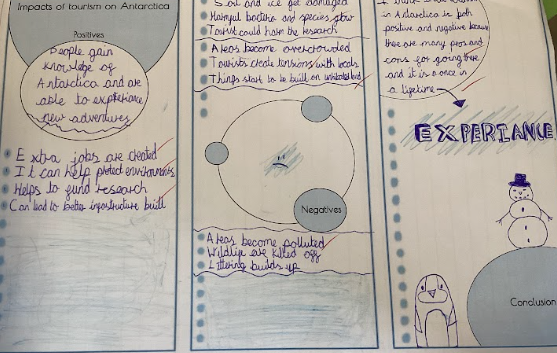 Impacts of tourism on Antarctica
Positives
People gain
knowledge of
Antarctica and are
able to experience
new adventures
Extra jobs are created
It can help protect environments
Helps to fund research
Can lead to better infrastructure built
Soil and ice get damaged
Harmful bacteria and species grow
Tourist could harm the research
Areas become overcrowded
Tourists create tensions with locals
Things start to be built on land
Negatives
Areas become polluted
Wildlife are killed off
Littering builds up
in Antarctica is both
positive and negative because
there are many pros and
cons for going there
and it is a once in
a lifetime
EXPERIANCE
Conclusion